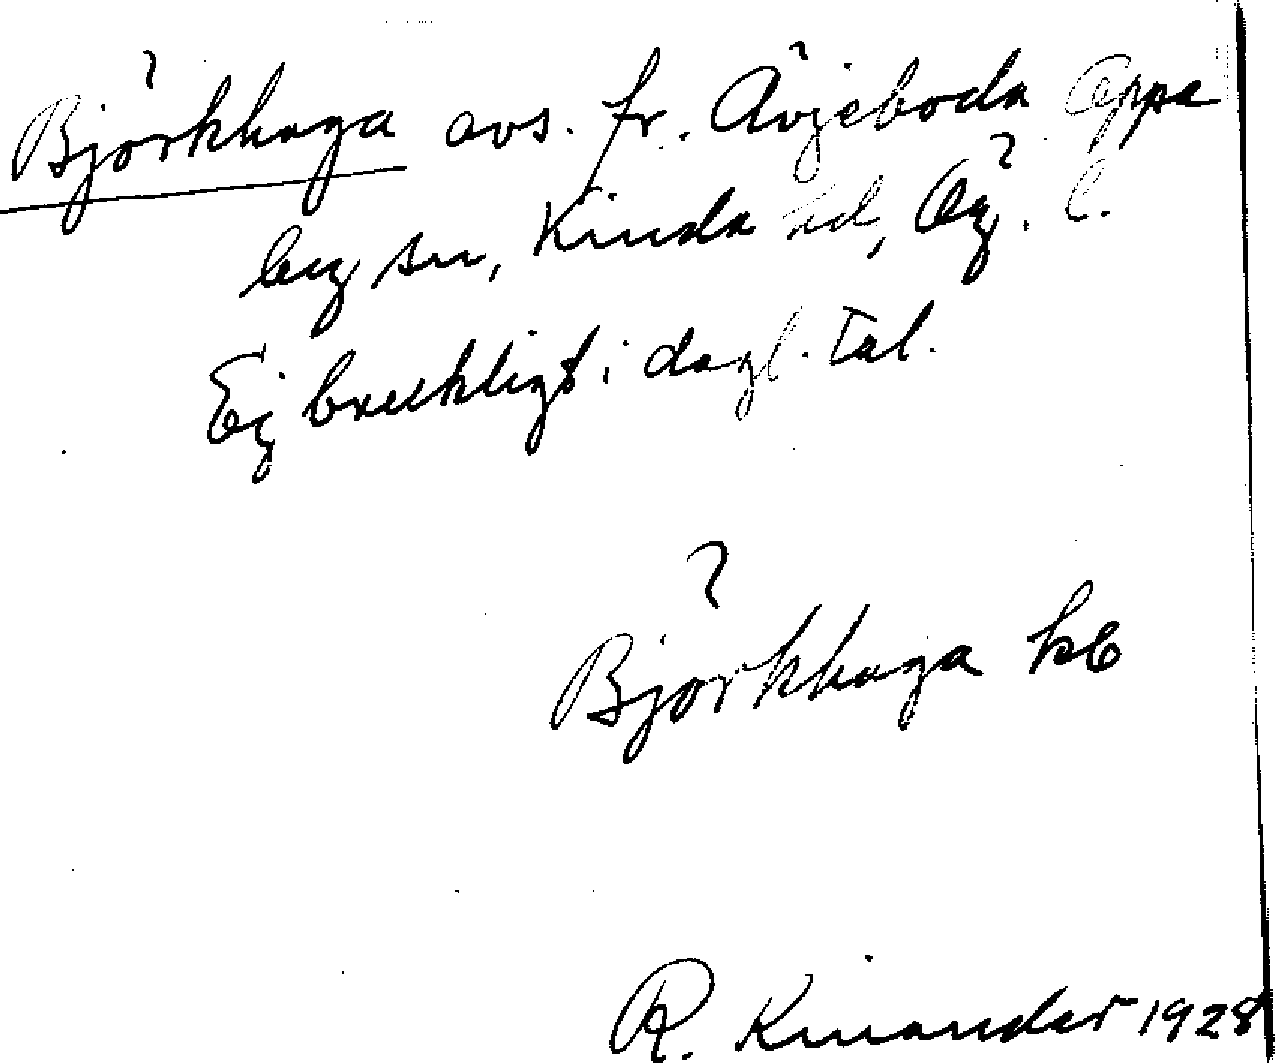 Björkhaga avs. fr. Ävjeboda Oppe
by sn, Kinda hd, Ög. l.
Ej brukligt i dagl. tal.
Björkhaga kb
R. Kinander 1928